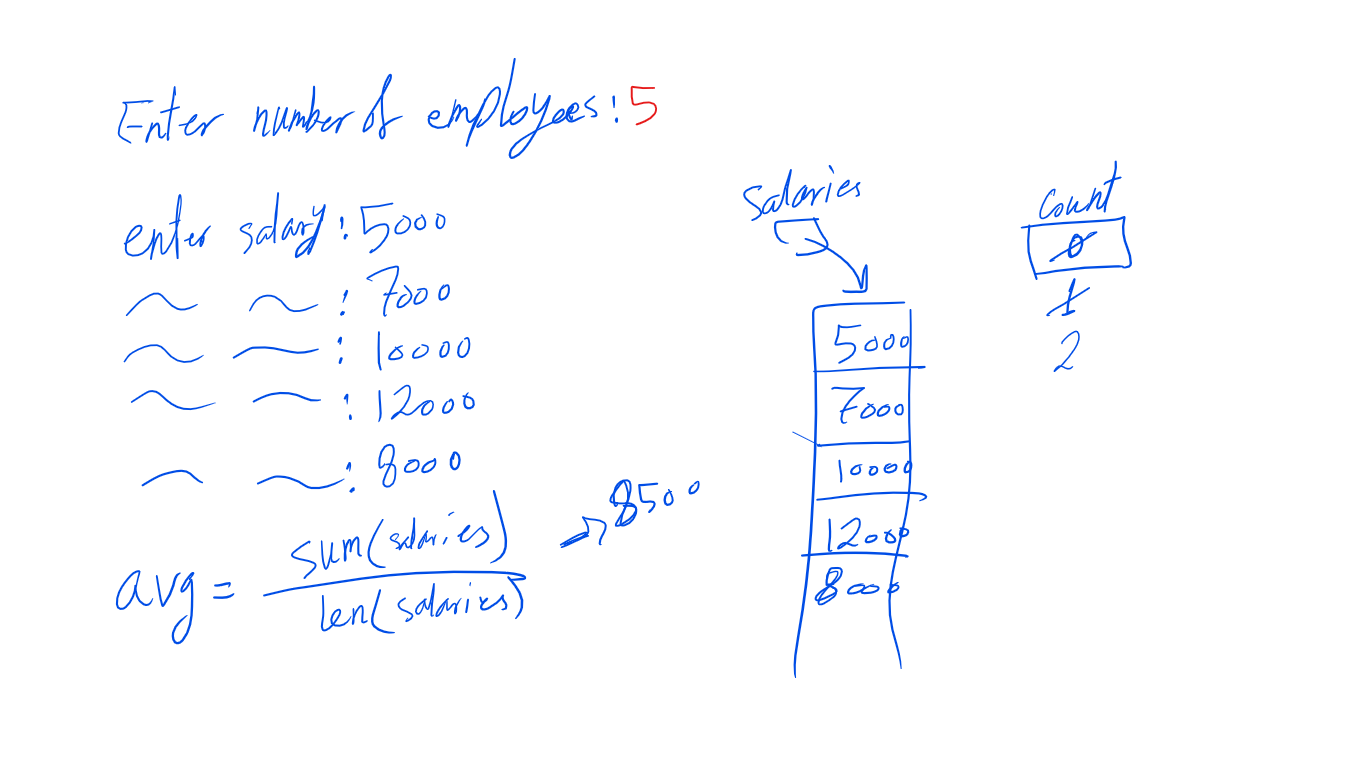 Enter number of employees: 5
enter salary: 5000
: 7000
: 10000
: 12000
: 8000
avg = sum(salaries) / len(salaries) → 8500
salaries
5000
7000
10000
12000
8000
count
0
1
2